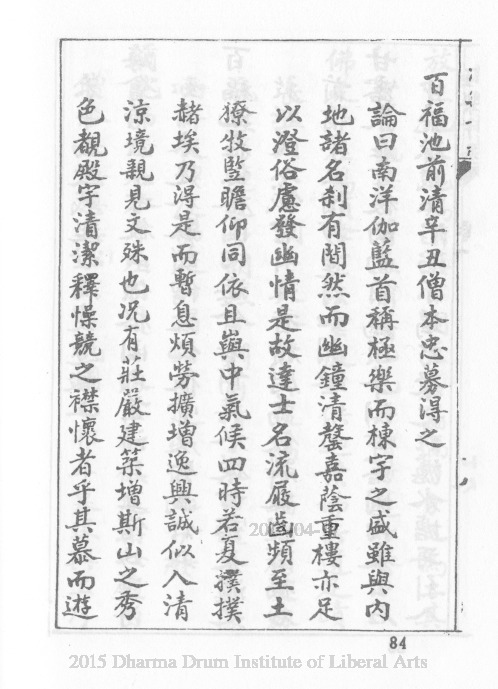 百福池前清辛丑僧本忠募得之
論曰南洋伽藍首稱極樂而棟宇之盛雖與內
地諸名刹有間然而幽鐘清磬嘉蔭重樓亦足
以澄俗慮發幽情是故達士名流屐齒頻至土
獠牧豎瞻仰同依且嶼中氣候四時若夏撲撲
赭埃乃得是而暫息煩勞擴增逸興誠似入清
涼境親見文殊也况有莊嚴建築增斯山之秀
色觀殿宇清潔釋懆競之襟懷者乎其慕而遊
84
2015 Dharma Drum Institute of Liberal Arts